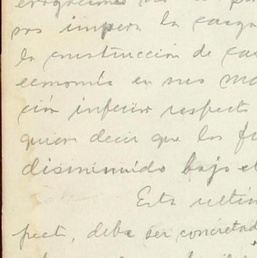 sos impera la casa
la construcción de ca
economía en sus ma
ción inferior respecto
quiere decir que los f
disminuído bajo e
Esta últim
pect, debe ser concretad